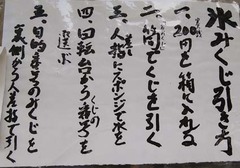 氷みくじ引き方
一、200円を箱に入れる
二、筒でくじを引く
三、人指にスポンジで水を
四、回転台からくじの番号を
選ぶ
五、目的番号のみくじを
裏側から人差で引く